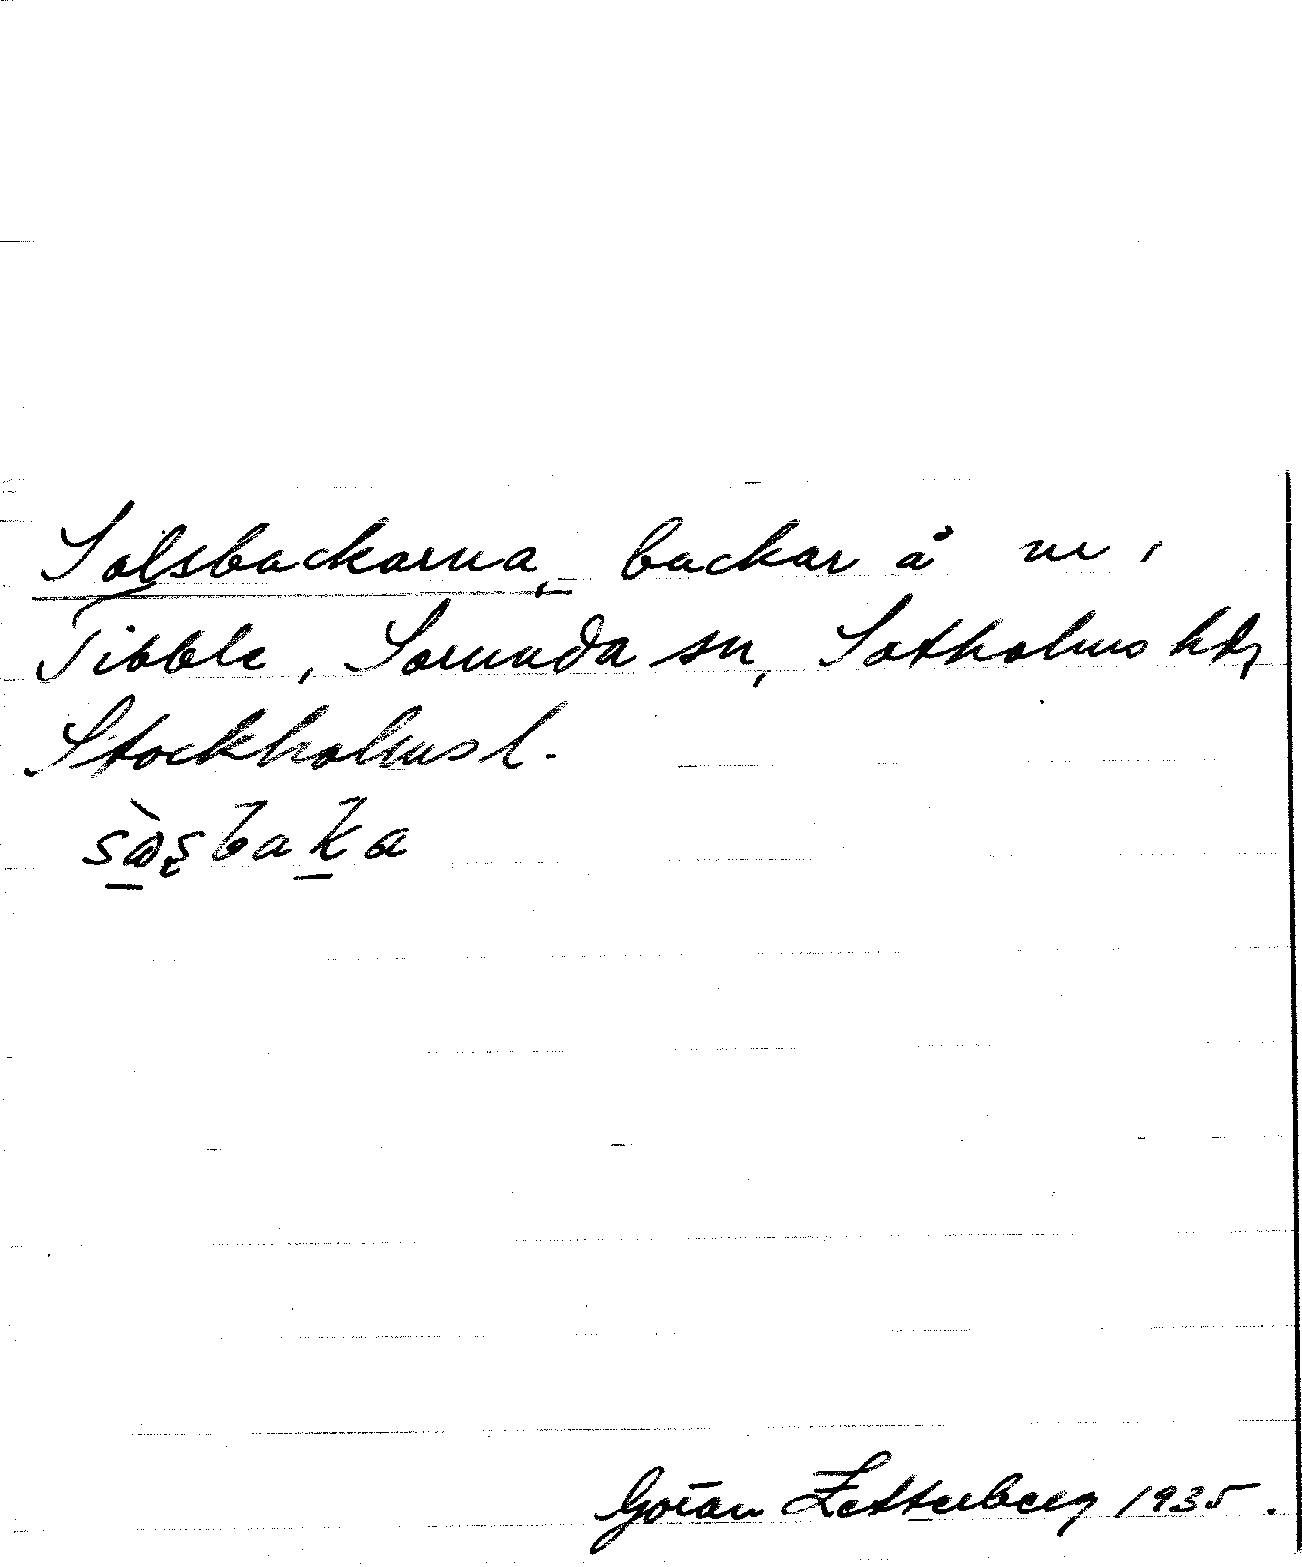 Solsbackarna, backar å ur,
Tibble, Sorunda sn, Sotholms hd,
Stockholms l.
Göran Zetterberg 1935.